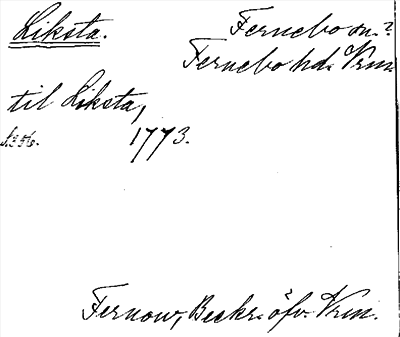 Liksta.
Fernebo sn.?
Fernebo hd. Vrm.
til Liksta,
1773.
Fernow, Beskr. öfv. Vrm.